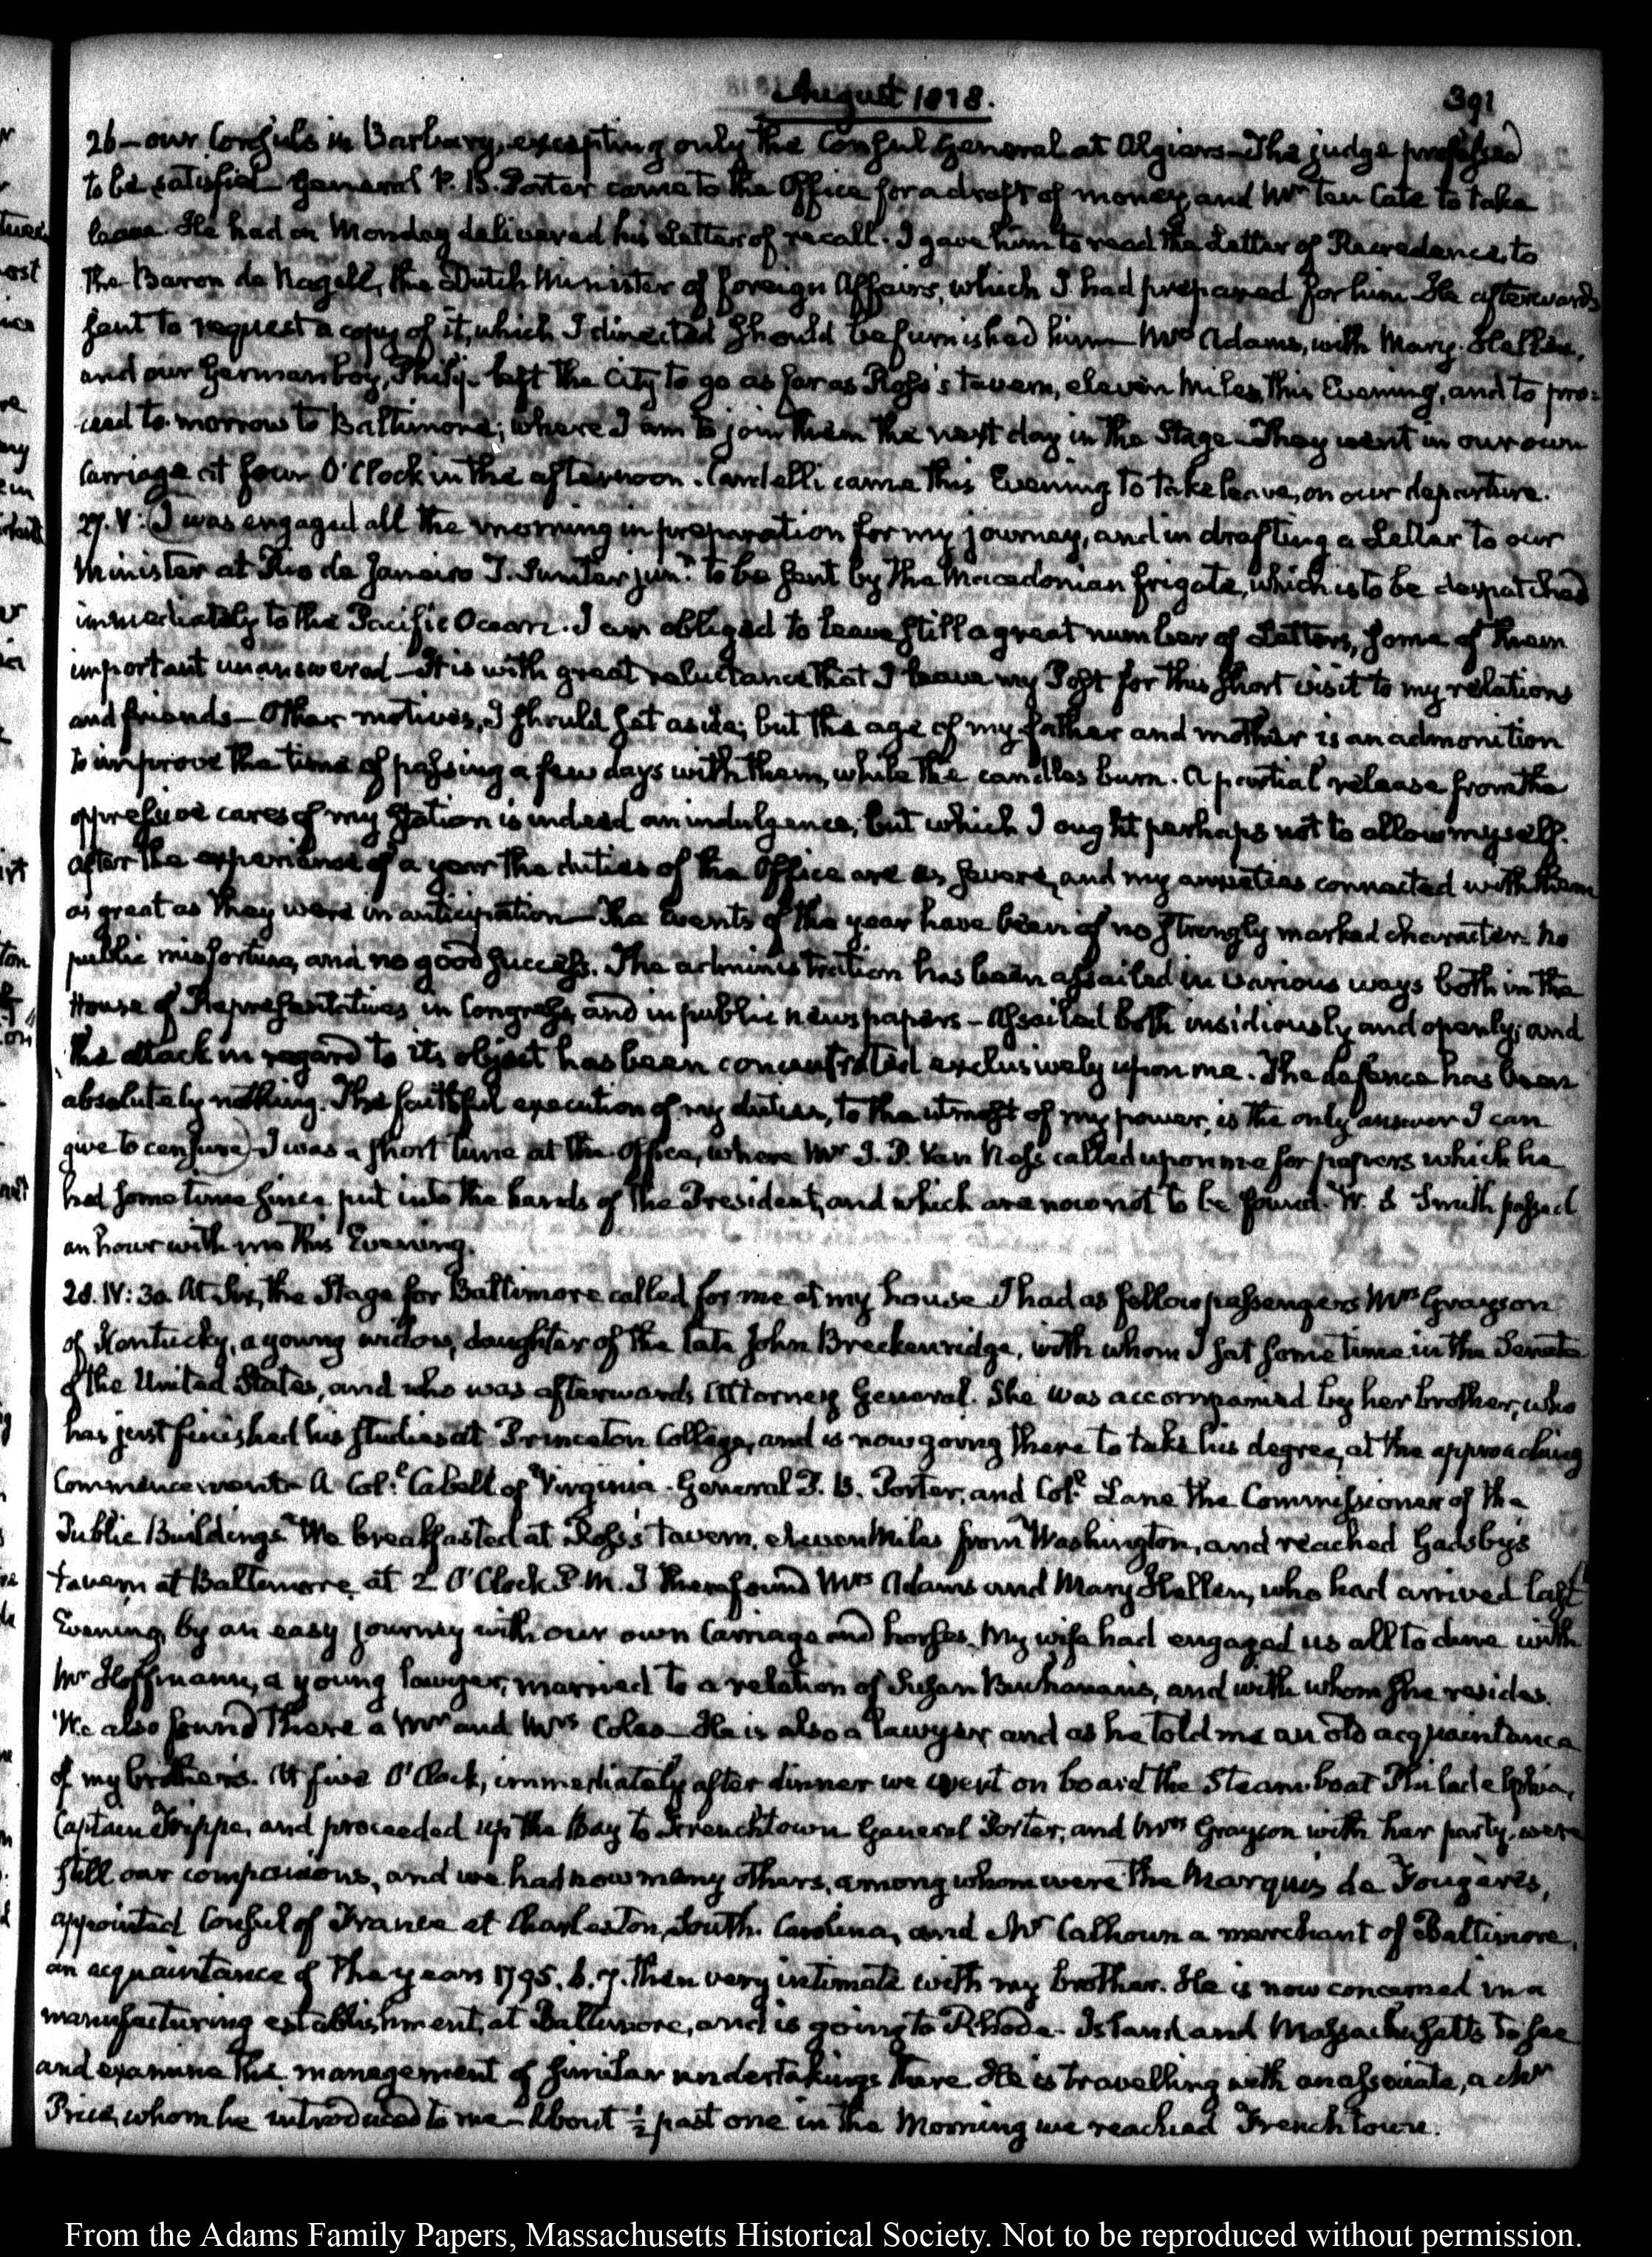 August 1818.
391
26 — our Consuls in Barbary, excepting only the Consul General at Algiers — The judge professed
to be satisfied — General P. B. Porter came to the Office for a draft of money, and Mr Ten Cate to take
leave. He had on Monday delivered his Letter of recall. I gave him to read the Letter of Recredence, to
the Baron de Nagell, the Dutch Minister of foreign Affairs, which I had prepared for him — He afterwards
sent to request a copy of it, which I directed should be furnished him — Mrs Adams, with Mary Hellen,
and our German boy, Philip left the City to go as far as Ross's tavern, eleven Miles, this Evening, and to pro=
ceed to-morrow to Baltimore; where I am to join them the next day in the Stage — They went in our own
Carriage at four O'Clock in the afternoon. Cardelli came this Evening to take leave, on our departure.
27. V: I was engaged all the morning in preparation for my journey, and in drafting a Letter to our
Minister at Rio de Janeiro T. Sumter junr. to be sent by the Macedonian frigate, which is to be despatched
immediately to the Pacific Ocean. I am obliged to leave still a great number of Letters, some of them
important unanswered — It is with great reluctance that I leave my Post for this short visit to my relations
and friends — Other motives, I should set aside; but the age of my father and mother is an admonition
to improve the time of passing a few days with them, while the candles burn. A partial release from the
oppressive cares of my Station is indeed an indulgence, but which I ought perhaps not to allow myself.
After the experience of a year the duties of the Office are as severe, and my anxieties connected with them
as great as they were in anticipation — The Events of the year have been of no strongly marked character. No
public misfortune, and no good success. The administration has been assailed in various ways both in the
House of Representatives in Congress, and in public newspapers — Assailed both insidiously and openly; and
the attack in regard to its object has been concentrated exclusively upon me. The defence has been
absolutely nothing. The faithful execution of my duties, to the utmost of my power, is the only answer I can
give to censure) I was a short time at the Office, where Mr J. P. Van Ness called upon me for papers which he
had some time since put into the hands of the President, and which are now not to be found. W. S Smith passed
an hour with me this Evening.
28. IV: 30. At six, the Stage for Baltimore called for me at my house I had as fellow passengers Mrs Grayson
of Kentucky, a young widow, daughter of the late John Breckenridge, with whom I sat some time in the Senate
of the United States, and who was afterwards Attorney General. She was accompanied by her brother, who
has just finished his studies at Princeton College, and is now going there to take his degree, at the approaching
Commencement — A Col.l Cabell of Virginia. General P. B. Porter, and Col.l Lane the Commissioner of the
Public Buildings — We breakfasted at Ross's tavern, eleven Miles from Washington, and reached Gadsby's
tavern at Baltimore at 2 O'Clock P. M. I there found Mrs Adams and Mary Hellen, who had arrived last
Evening, by an easy journey with our own Carriage and horses. My wife had engaged us all to dine with
Mr Hoffmann, a young lawyer, married to a relation of Susan Buchanan's, and with whom she resides.
We also found there a Mr and Mrs Coles — He is also a lawyer and as he told me an old acquaintance
of my brother's. At five O'Clock, immediately after dinner we went on board the Steam-boat Philadelphia,
Captain Trippe, and proceeded up the Bay to Frenchtown General Porter, and Mrs Grayson with her party, were
still our companions, and we had now many others, among whom were the Marquis de Fougères,
appointed Consul of France at Charleston, South-Carolina, and Mr Calhoun a merchant of Baltimore,
an acquaintance of the years 1795. 6. 7. then very intimate with my brother. He is now concerned in a
manufacturing establishment, at Baltimore, and is going to Rhode-Island and Massachusetts to see
and examine the management of similar undertakings there. He is travelling with an associate, a Mr
Price, whom he introduced to me — About ½ past one in the Morning we reached Frenchtown.
From the Adams Family Papers, Massachusetts Historical Society. Not to be reproduced without permission.